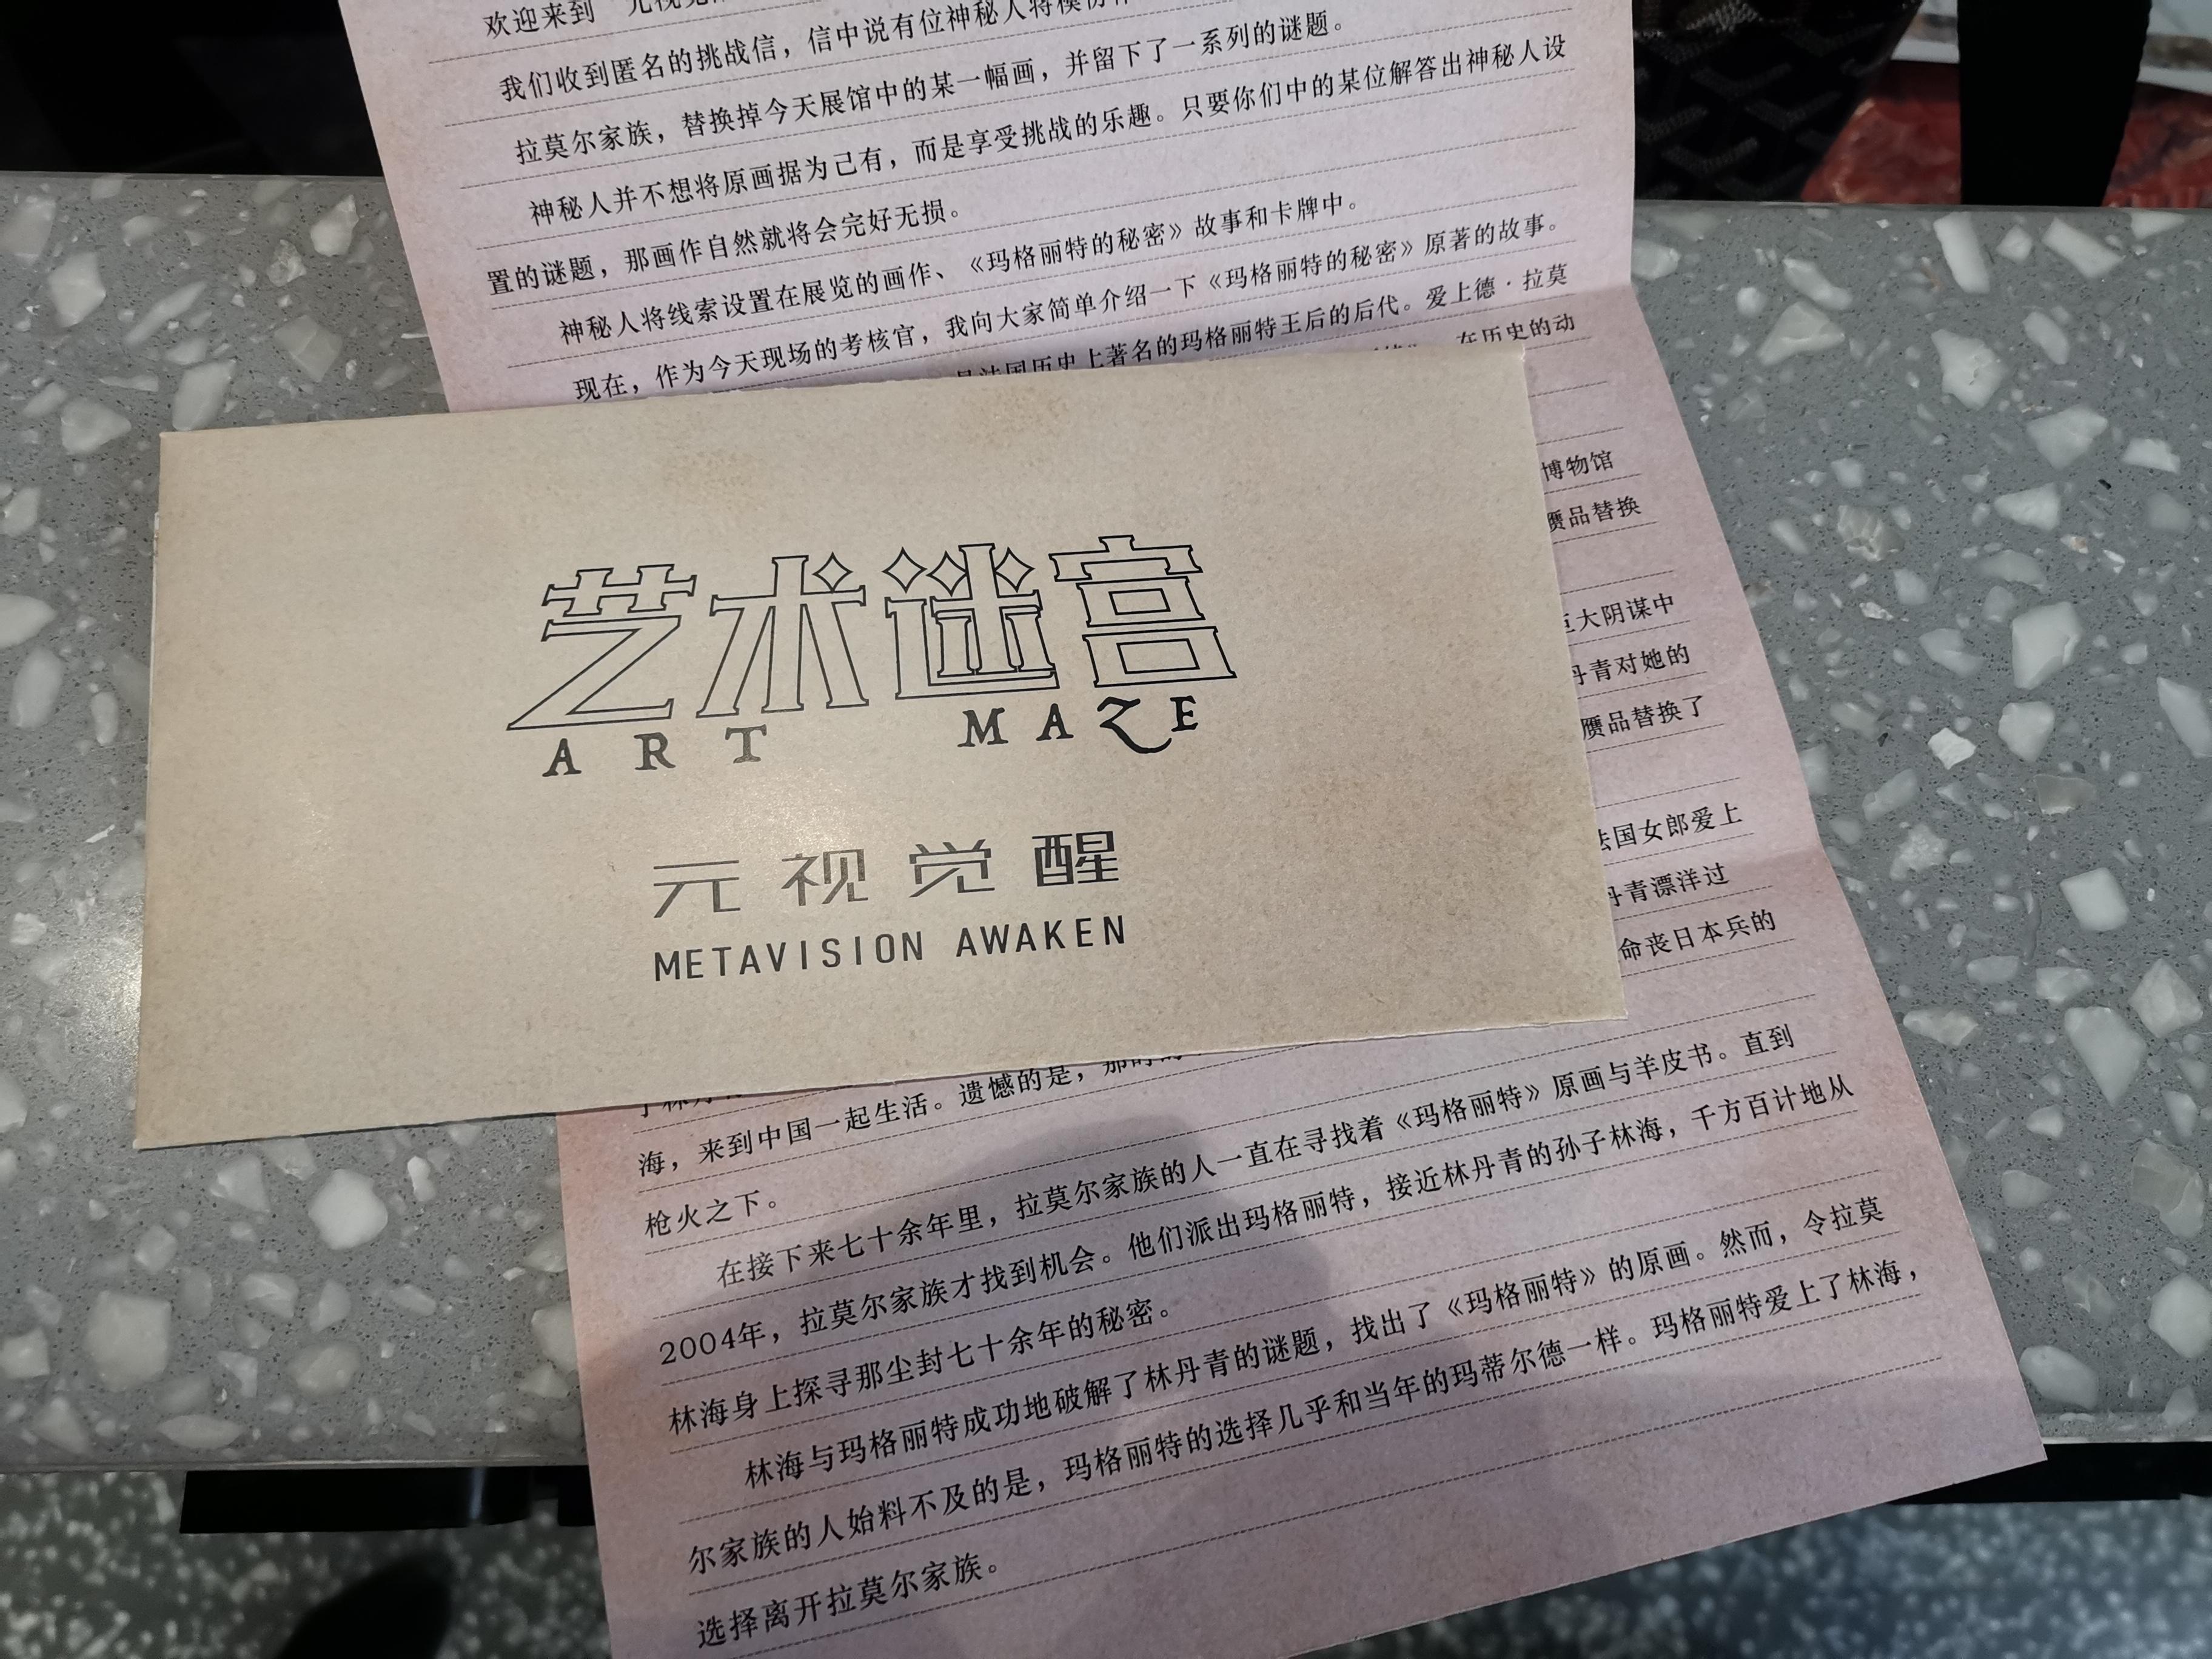 欢迎来到“元视觉
我们收到匿名的挑战信，信中说有位神秘人将模仿
拉莫尔家族，替换掉今天展馆中的某一幅画，并留下了一系列的谜题。
神秘人并不想将原画据为己有，而是享受挑战的乐趣。只要你们中的某位解答出神秘人设
置的谜题，那画作自然就将会完好无损。
神秘人将线索设置在展览的画作、《玛格丽特的秘密》故事和卡牌中。
现在，作为今天现场的考核官，我向大家简单介绍一下《玛格丽特的秘密》原著的故事。
是法国历史上著名的玛格丽特王后的后代。爱上德·拉莫
在历史的动
博物馆
赝品替换
巨大阴谋中
丹青对她的
赝品替换了
法国女郎爱上
丹青漂洋过
命丧日本兵的
艺术迷宫
ART MAZE
元视觉醒
METAVISION AWAKEN
海，来到中国一起生活。遗憾的是，那时的
枪火之下。
在接下来七十余年里，拉莫尔家族的人一直在寻找着《玛格丽特》原画与羊皮书。直到
2004年，拉莫尔家族才找到机会。他们派出玛格丽特，接近林丹青的孙子林海，千方百计地从
林海身上探寻那尘封七十余年的秘密。
林海与玛格丽特成功地破解了林丹青的谜题，找出了《玛格丽特》的原画。然而，令拉莫
尔家族的人始料不及的是，玛格丽特的选择几乎和当年的玛蒂尔德一样。玛格丽特爱上了林海，
选择离开拉莫尔家族。